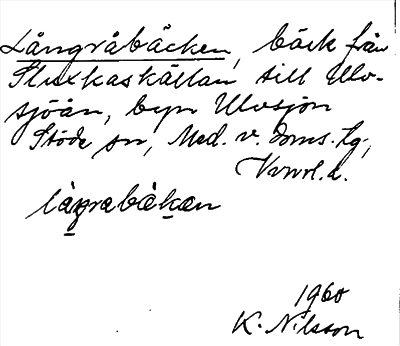 Långråbäcken, bäck från
Sluxkaskällan till Ulv-
sjöån, byn Ulvsjön
Stöde sn, Med. v. doms. tg.,
Vnrl. l.
làŋrabäkæn
1960
K. Nilsson